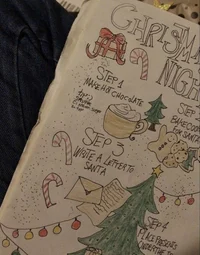 CHRISTMA
NIGH
STEP 1
MAKE HOT CHOCOLATE
STEP
BAKE COO
FOR SANTA
STEP 3
WRITE A LETTER TO
SANTA
STEP 4
PLACE PRESENTS
UNDER THE